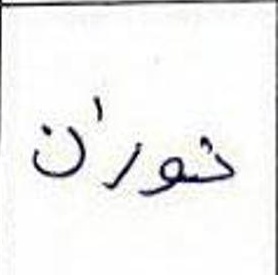 نوران